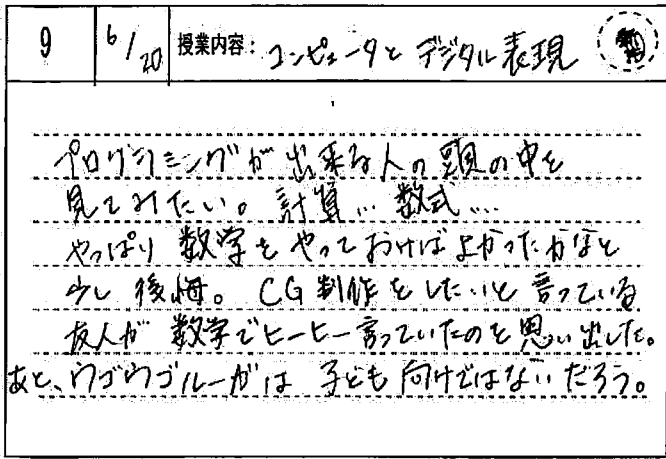 9 6/20 授業内容: コンピュータとデジタル表現
プログラミングが出来る人の頭の中を
見てみたい。計算… 数式…
やっぱり数学をやっておけばよかったかなと
少し後悔。CG制作をしたいと言っている
友人が数学でヒーヒー言っていたのを思い出した。
あと、ウゴウゴルーガは子ども向けではないだろう。